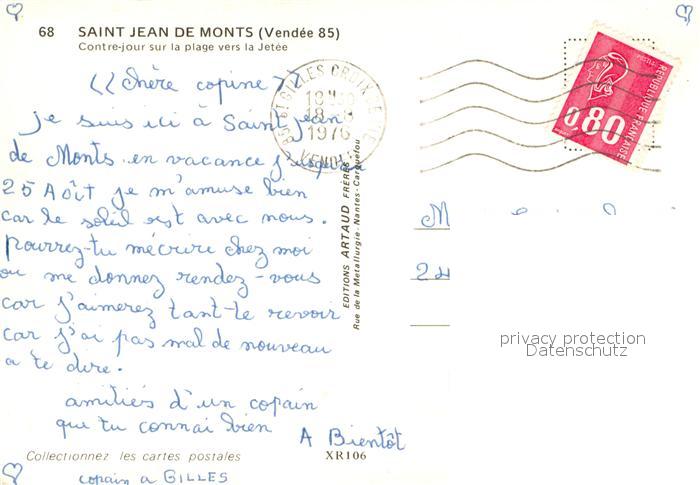 68 SAINT JEAN DE MONTS (Vendée 85)
Contre-jour sur la plage vers la Jetée
<< Chère copine >>
je suis ici à Saint Jean
de Monts en vacance jusqu'au
25 Août je m'amuse bien
car le soleil est avec nous.
pourrez-tu mécrire chez moi
ou me donnez rendez-vous
car j'aimerez tant te revoir
car j'ai pas mal de nouveau
a te dire.
amitiés d'un copain
que tu connai bien
A Bientôt
Collectionnez les cartes postales
XR106
copain a GILLES
EDITIONS ARTAUD FRÈRES
Rue de la Métallurgie - Nantes-Carquefou
ST GILLES CROIX DE VIE
18H
18 - 8
1976
VENDÉE
RÉPUBLIQUE FRANÇAISE
0,80
M
24
privacy protection
Datenschutz